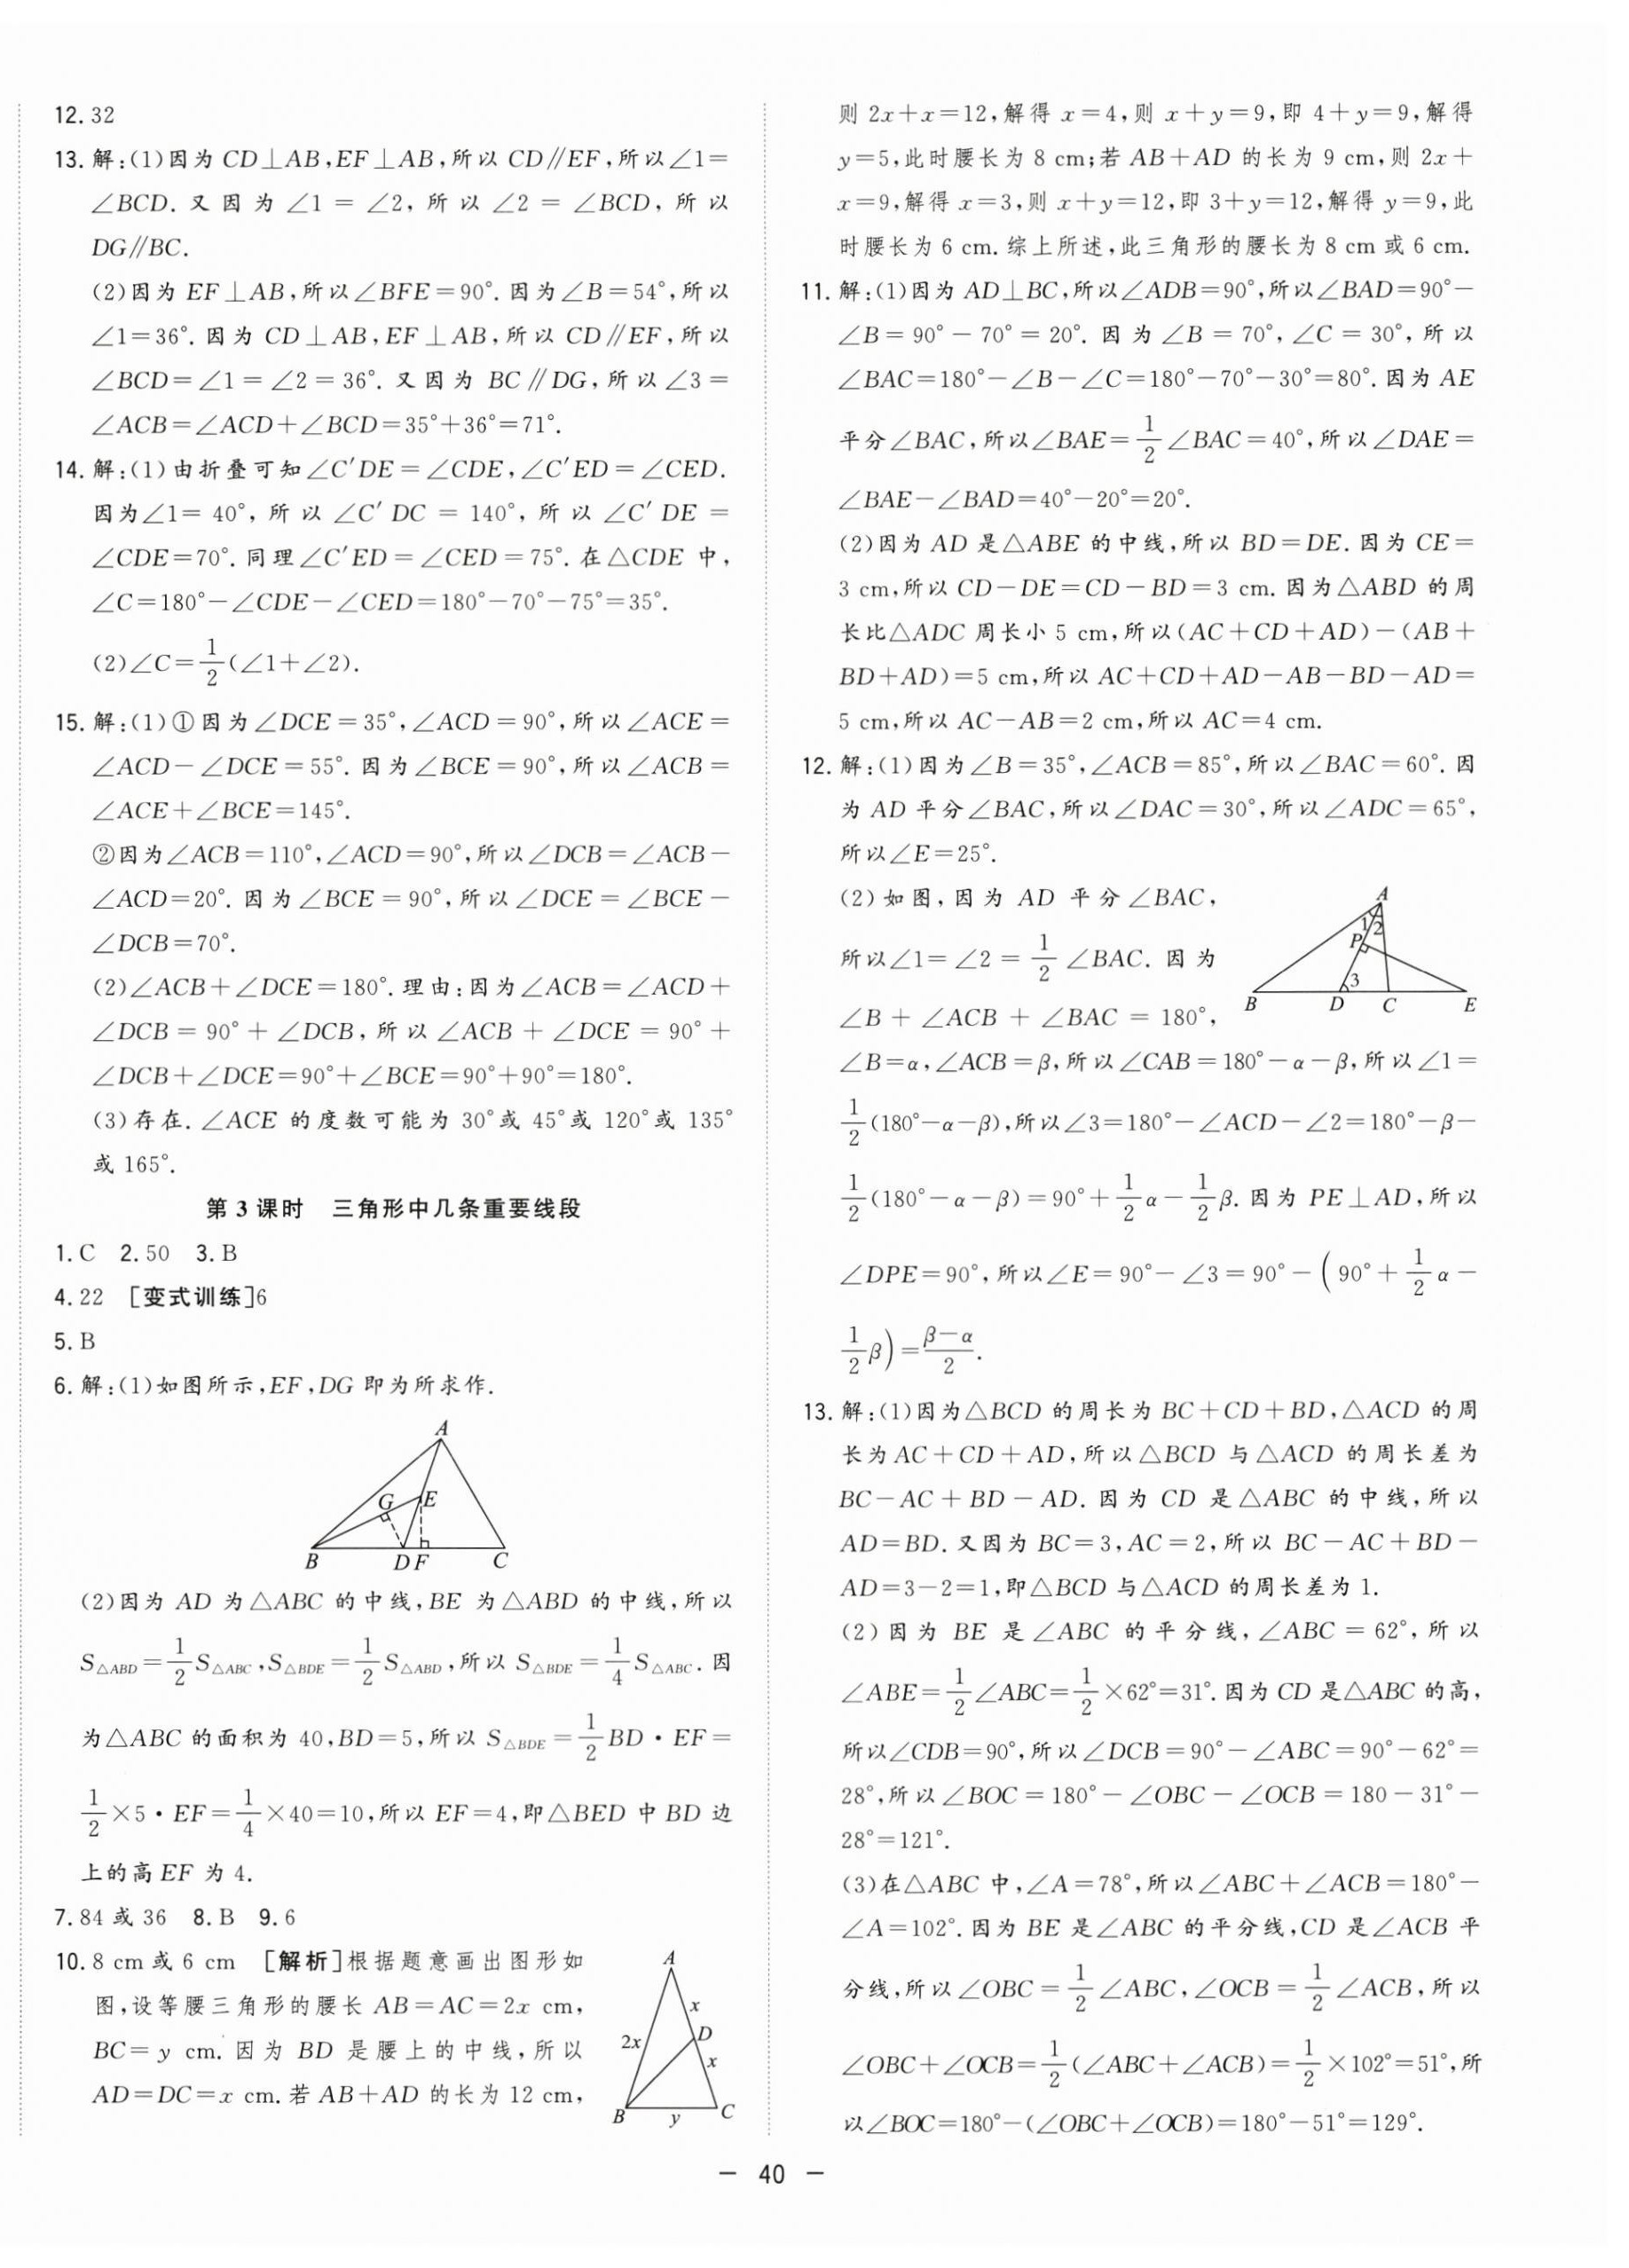 12. 32
13. 解:(1)因为 CD⊥AB,EF⊥AB,所以 CD∥EF,所以∠1=
∠BCD. 又因为 ∠1 = ∠2, 所以 ∠2 = ∠BCD, 所以
DG∥BC.
(2)因为 EF⊥AB,所以∠BFE=90°. 因为∠B=54°,所以
∠1=36°. 因为 CD⊥AB,EF⊥AB,所以 CD∥EF,所以
∠BCD=∠1=∠2=36°. 又因为 BC∥DG,所以∠3=
∠ACB=∠ACD+∠BCD=35°+36°=71°.
14. 解:(1)由折叠可知∠C′DE=∠CDE,∠C′ED=∠CED.
因为∠1=40°,所以∠C′DC=140°,所以∠C′DE=
∠CDE=70°. 同理∠C′ED=∠CED=75°. 在△CDE 中,
∠C=180°-∠CDE-∠CED=180°-70°-75°=35°.
(2)∠C=1/2(∠1+∠2).
15. 解:(1)①因为∠DCE=35°,∠ACD=90°,所以∠ACE=
∠ACD-∠DCE=55°. 因为∠BCE=90°,所以∠ACB=
∠ACE+∠BCE=145°.
②因为∠ACB=110°,∠ACD=90°,所以∠DCB=∠ACB-
∠ACD=20°. 因为∠BCE=90°,所以∠DCE=∠BCE-
∠DCB=70°.
(2)∠ACB+∠DCE=180°. 理由:因为∠ACB=∠ACD+
∠DCB=90°+∠DCB,所以∠ACB+∠DCE=90°+
∠DCB+∠DCE=90°+∠BCE=90°+90°=180°.
(3)存在. ∠ACE 的度数可能为 30°或 45°或 120°或 135°
或 165°.
第 3 课时 三角形中几条重要线段
1. C 2. 50 3. B
4. 22 [变式训练]6
5. B
6. 解:(1)如图所示,EF,DG 即为所求作.
A
G E
B D F C
(2)因为 AD 为△ABC 的中线,BE 为△ABD 的中线,所以
S△ABD=1/2S△ABC,S△BDE=1/2S△ABD,所以 S△BDE=1/4S△ABC. 因
为△ABC 的面积为 40,BD=5,所以 S△BDE=1/2BD·EF=
1/2×5·EF=1/4×40=10,所以 EF=4,即△BED 中 BD 边
上的高 EF 为 4.
7. 84 或 36 8. B 9. 6
10. 8 cm 或 6 cm [解析]根据题意画出图形如
图,设等腰三角形的腰长 AB=AC=2x cm,
BC=y cm. 因为 BD 是腰上的中线,所以
AD=DC=x cm. 若 AB+AD 的长为 12 cm,
A
x
2x D
x
B y C
则 2x+x=12,解得 x=4,则 x+y=9,即 4+y=9,解得
y=5,此时腰长为 8 cm;若 AB+AD 的长为 9 cm,则 2x+
x=9,解得 x=3,则 x+y=12,即 3+y=12,解得 y=9,此
时腰长为 6 cm. 综上所述,此三角形的腰长为 8 cm 或 6 cm.
11. 解:(1)因为 AD⊥BC,所以∠ADB=90°,所以∠BAD=90°-
∠B=90°-70°=20°. 因为∠B=70°,∠C=30°,所以
∠BAC=180°-∠B-∠C=180°-70°-30°=80°. 因为 AE
平分∠BAC,所以∠BAE=1/2∠BAC=40°,所以∠DAE=
∠BAE-∠BAD=40°-20°=20°.
(2)因为 AD 是△ABE 的中线,所以 BD=DE. 因为 CE=
3 cm,所以 CD-DE=CD-BD=3 cm. 因为△ABD 的周
长比△ADC 周长小 5 cm,所以(AC+CD+AD)-(AB+
BD+AD)=5 cm,所以 AC+CD+AD-AB-BD-AD=
5 cm,所以 AC-AB=2 cm,所以 AC=4 cm.
12. 解:(1)因为∠B=35°,∠ACB=85°,所以∠BAC=60°. 因
为 AD 平分∠BAC,所以∠DAC=30°,所以∠ADC=65°,
所以∠E=25°.
(2)如图,因为 AD 平分∠BAC,
所以∠1=∠2=1/2∠BAC. 因为
∠B+∠ACB+∠BAC=180°,
A
1 2
P
3
B D C E
∠B=α,∠ACB=β,所以∠CAB=180°-α-β,所以∠1=
1/2(180°-α-β),所以∠3=180°-∠ACD-∠2=180°-β-
1/2(180°-α-β)=90°+1/2α-1/2β. 因为 PE⊥AD,所以
∠DPE=90°,所以∠E=90°-∠3=90°-(90°+1/2α-
1/2β)=(β-α)/2.
13. 解:(1)因为△BCD 的周长为 BC+CD+BD,△ACD 的周
长为 AC+CD+AD,所以△BCD 与△ACD 的周长差为
BC-AC+BD-AD. 因为 CD 是△ABC 的中线,所以
AD=BD. 又因为 BC=3,AC=2,所以 BC-AC+BD-
AD=3-2=1,即△BCD 与△ACD 的周长差为 1.
(2)因为 BE 是∠ABC 的平分线,∠ABC=62°,所以
∠ABE=1/2∠ABC=1/2×62°=31°. 因为 CD 是△ABC 的高,
所以∠CDB=90°,所以∠DCB=90°-∠ABC=90°-62°=
28°,所以∠BOC=180°-∠OBC-∠OCB=180-31°-
28°=121°.
(3)在△ABC 中,∠A=78°,所以∠ABC+∠ACB=180°-
∠A=102°. 因为 BE 是∠ABC 的平分线,CD 是∠ACB 平
分线,所以∠OBC=1/2∠ABC,∠OCB=1/2∠ACB,所以
∠OBC+∠OCB=1/2(∠ABC+∠ACB)=1/2×102°=51°,所
以∠BOC=180°-(∠OBC+∠OCB)=180°-51°=129°.
— 40 —